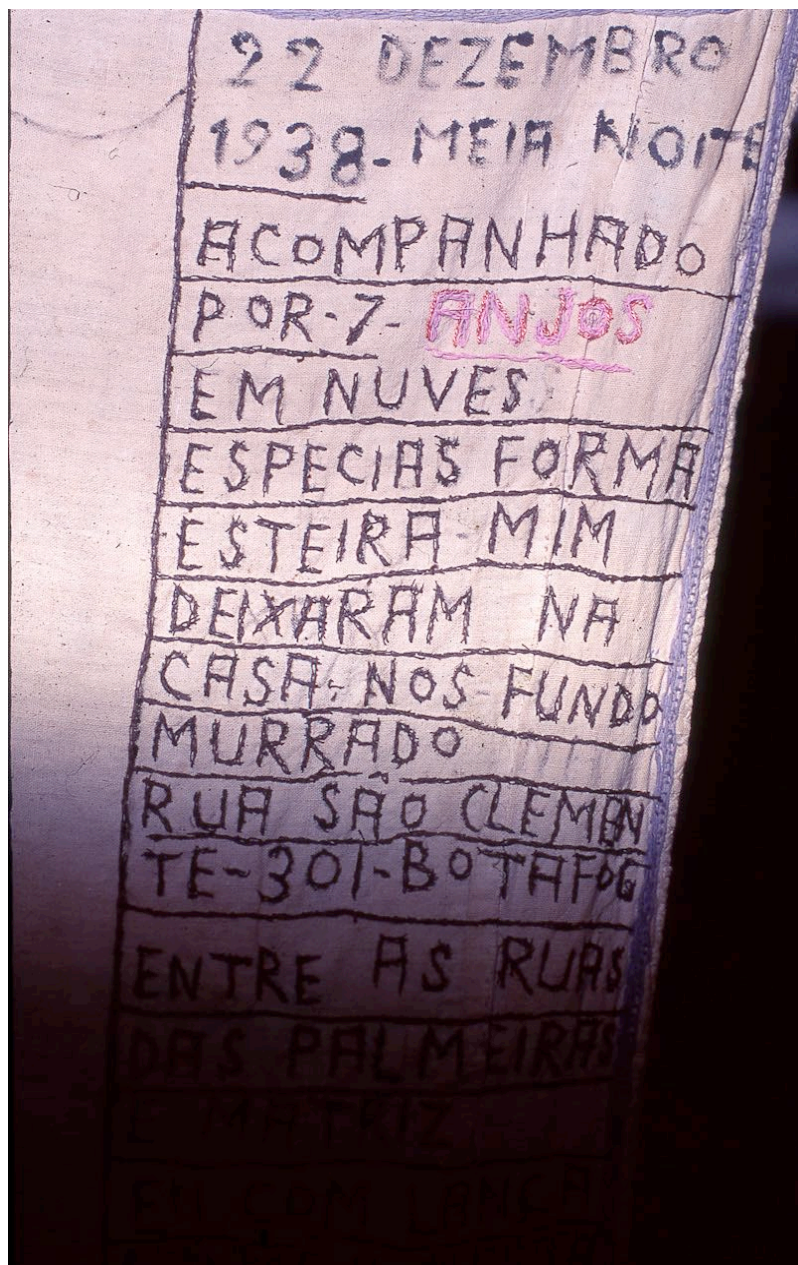 22 DEZEMBRO
1938- MEIA NOITE
ACOMPANHADO
POR-7-ANJOS
EM NUVES
ESPECIAS FORMA
ESTEIRA-MIM
DEIXARAM NA
CASA-NOS FUNDO
MURRADO
RUA SÃO CLEMEN
TE-301-BOTAFOG
ENTRE AS RUAS
DAS PALMEIRAS
E MATRIZ
EU COM LANÇA